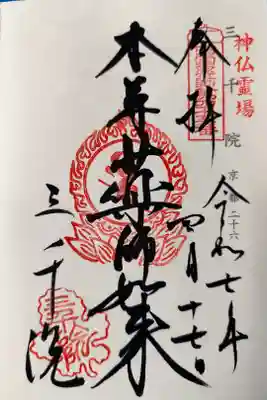 神仏霊場
三千院
京都二十六
奉拝
令和七年
四月十七日
本尊薬師如来
三千院